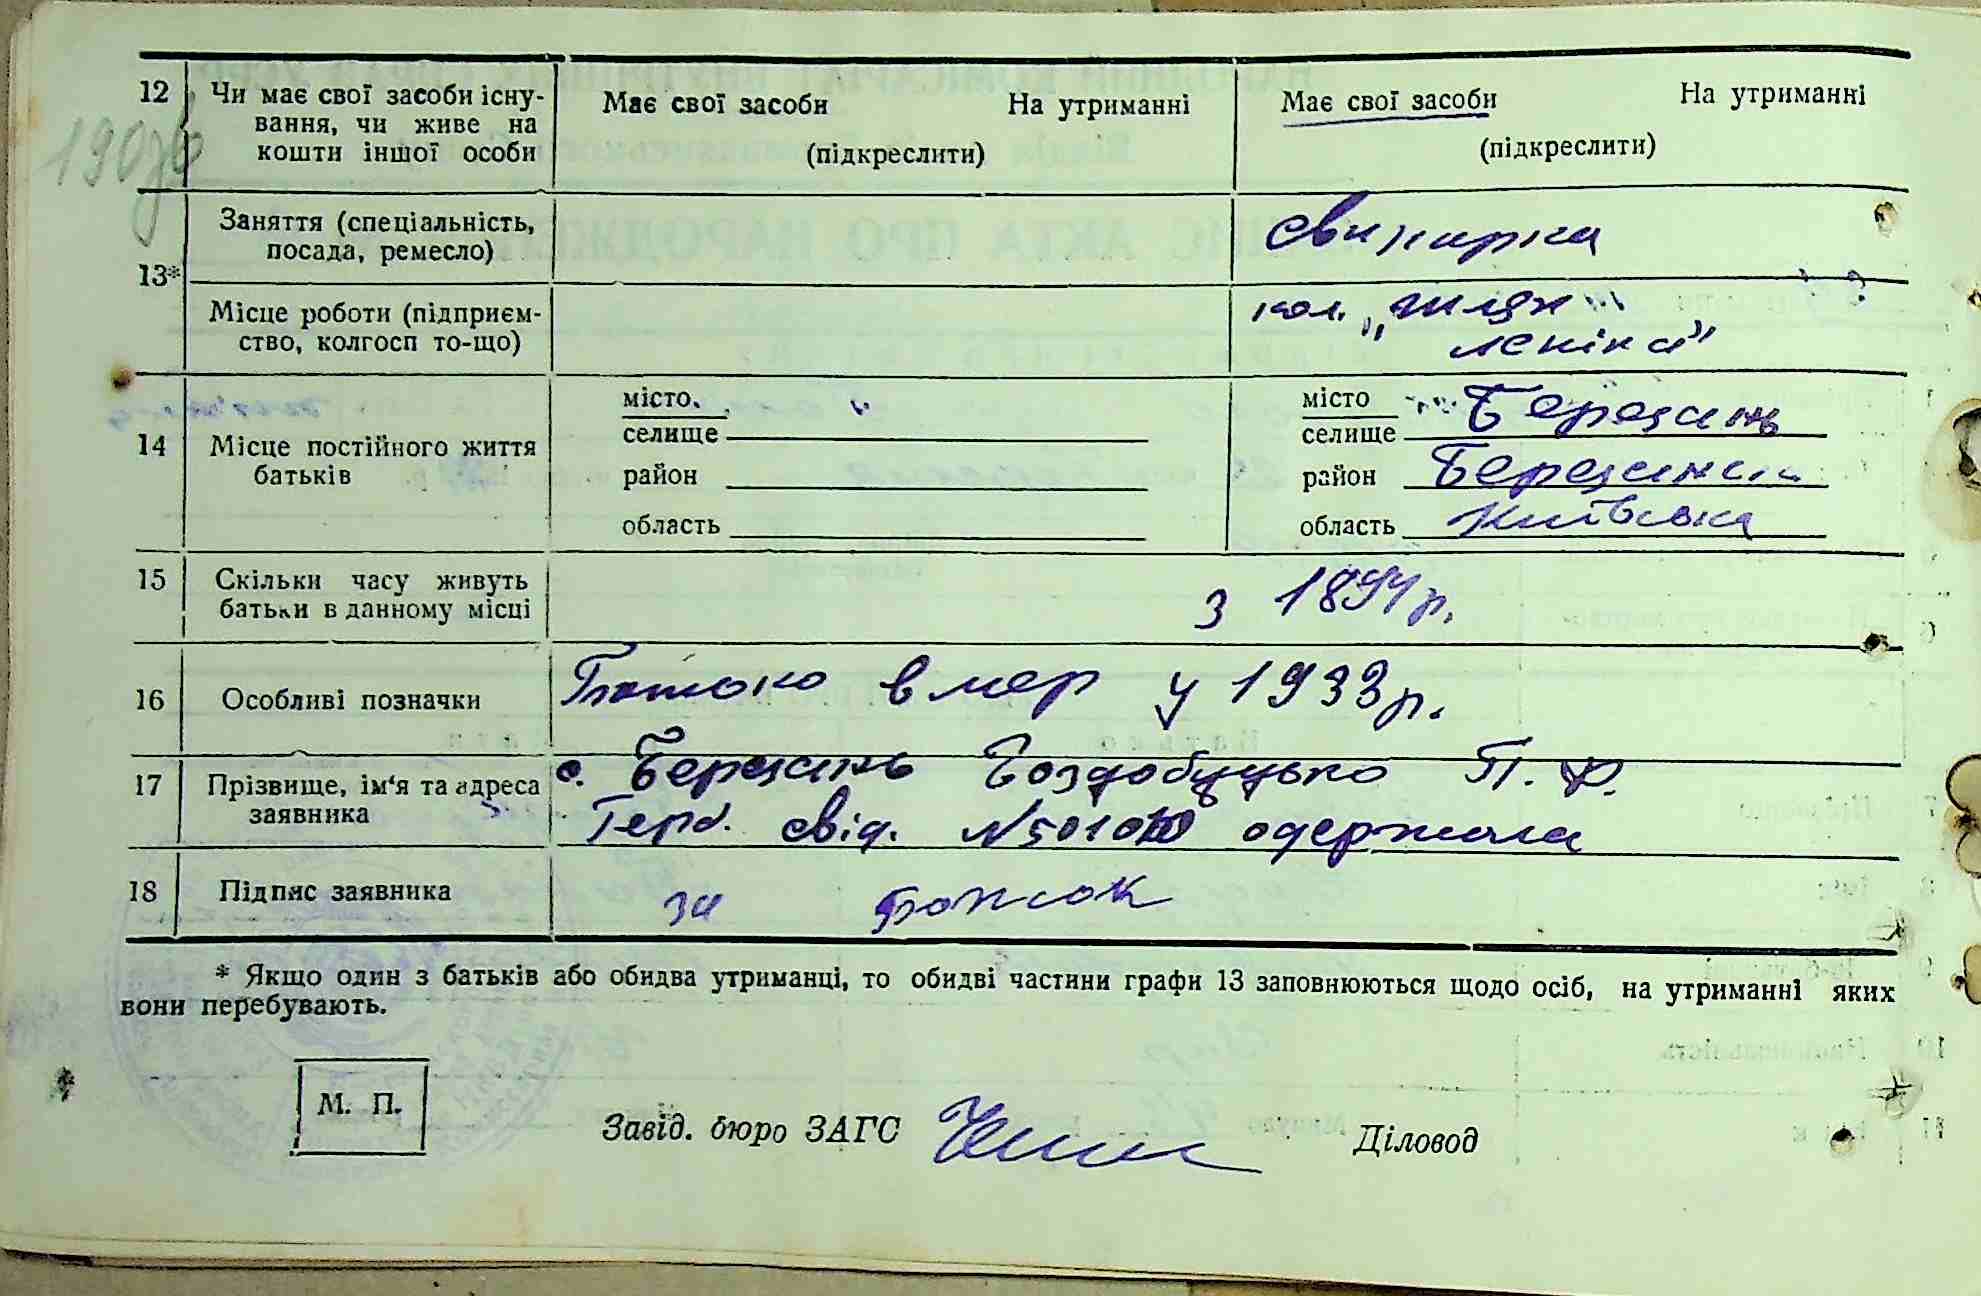 12 Чи має свої засоби існу- Має свої засоби На утриманні Має свої засоби На утриманні
вання, чи живе на
кошти іншої особи (підкреслити) (підкреслити)
Заняття (спеціальність, свинарка
посада, ремесло)
13*
Місце роботи (підприєм- кол. „Шлях
ство, колгосп то-що) Леніна"
місто місто Березань
селище селище
14 Місце постійного життя район район
батьків
область область Київська
15 Скільки часу живуть з 1894 р.
батьки в данному місці
16 Особливі позначки Батько вмер у 1933 р.
17 Прізвище, ім'я та адреса с. Березань П. Ф.
заявника Герб. свід. одержала
18 Підпис заявника за
* Якщо один з батьків або обидва утриманці, то обидві частини графи 13 заповнюються щодо осіб, на утриманні яких
вони перебувають.
М. П.
Завід. бюро ЗАГС Діловод